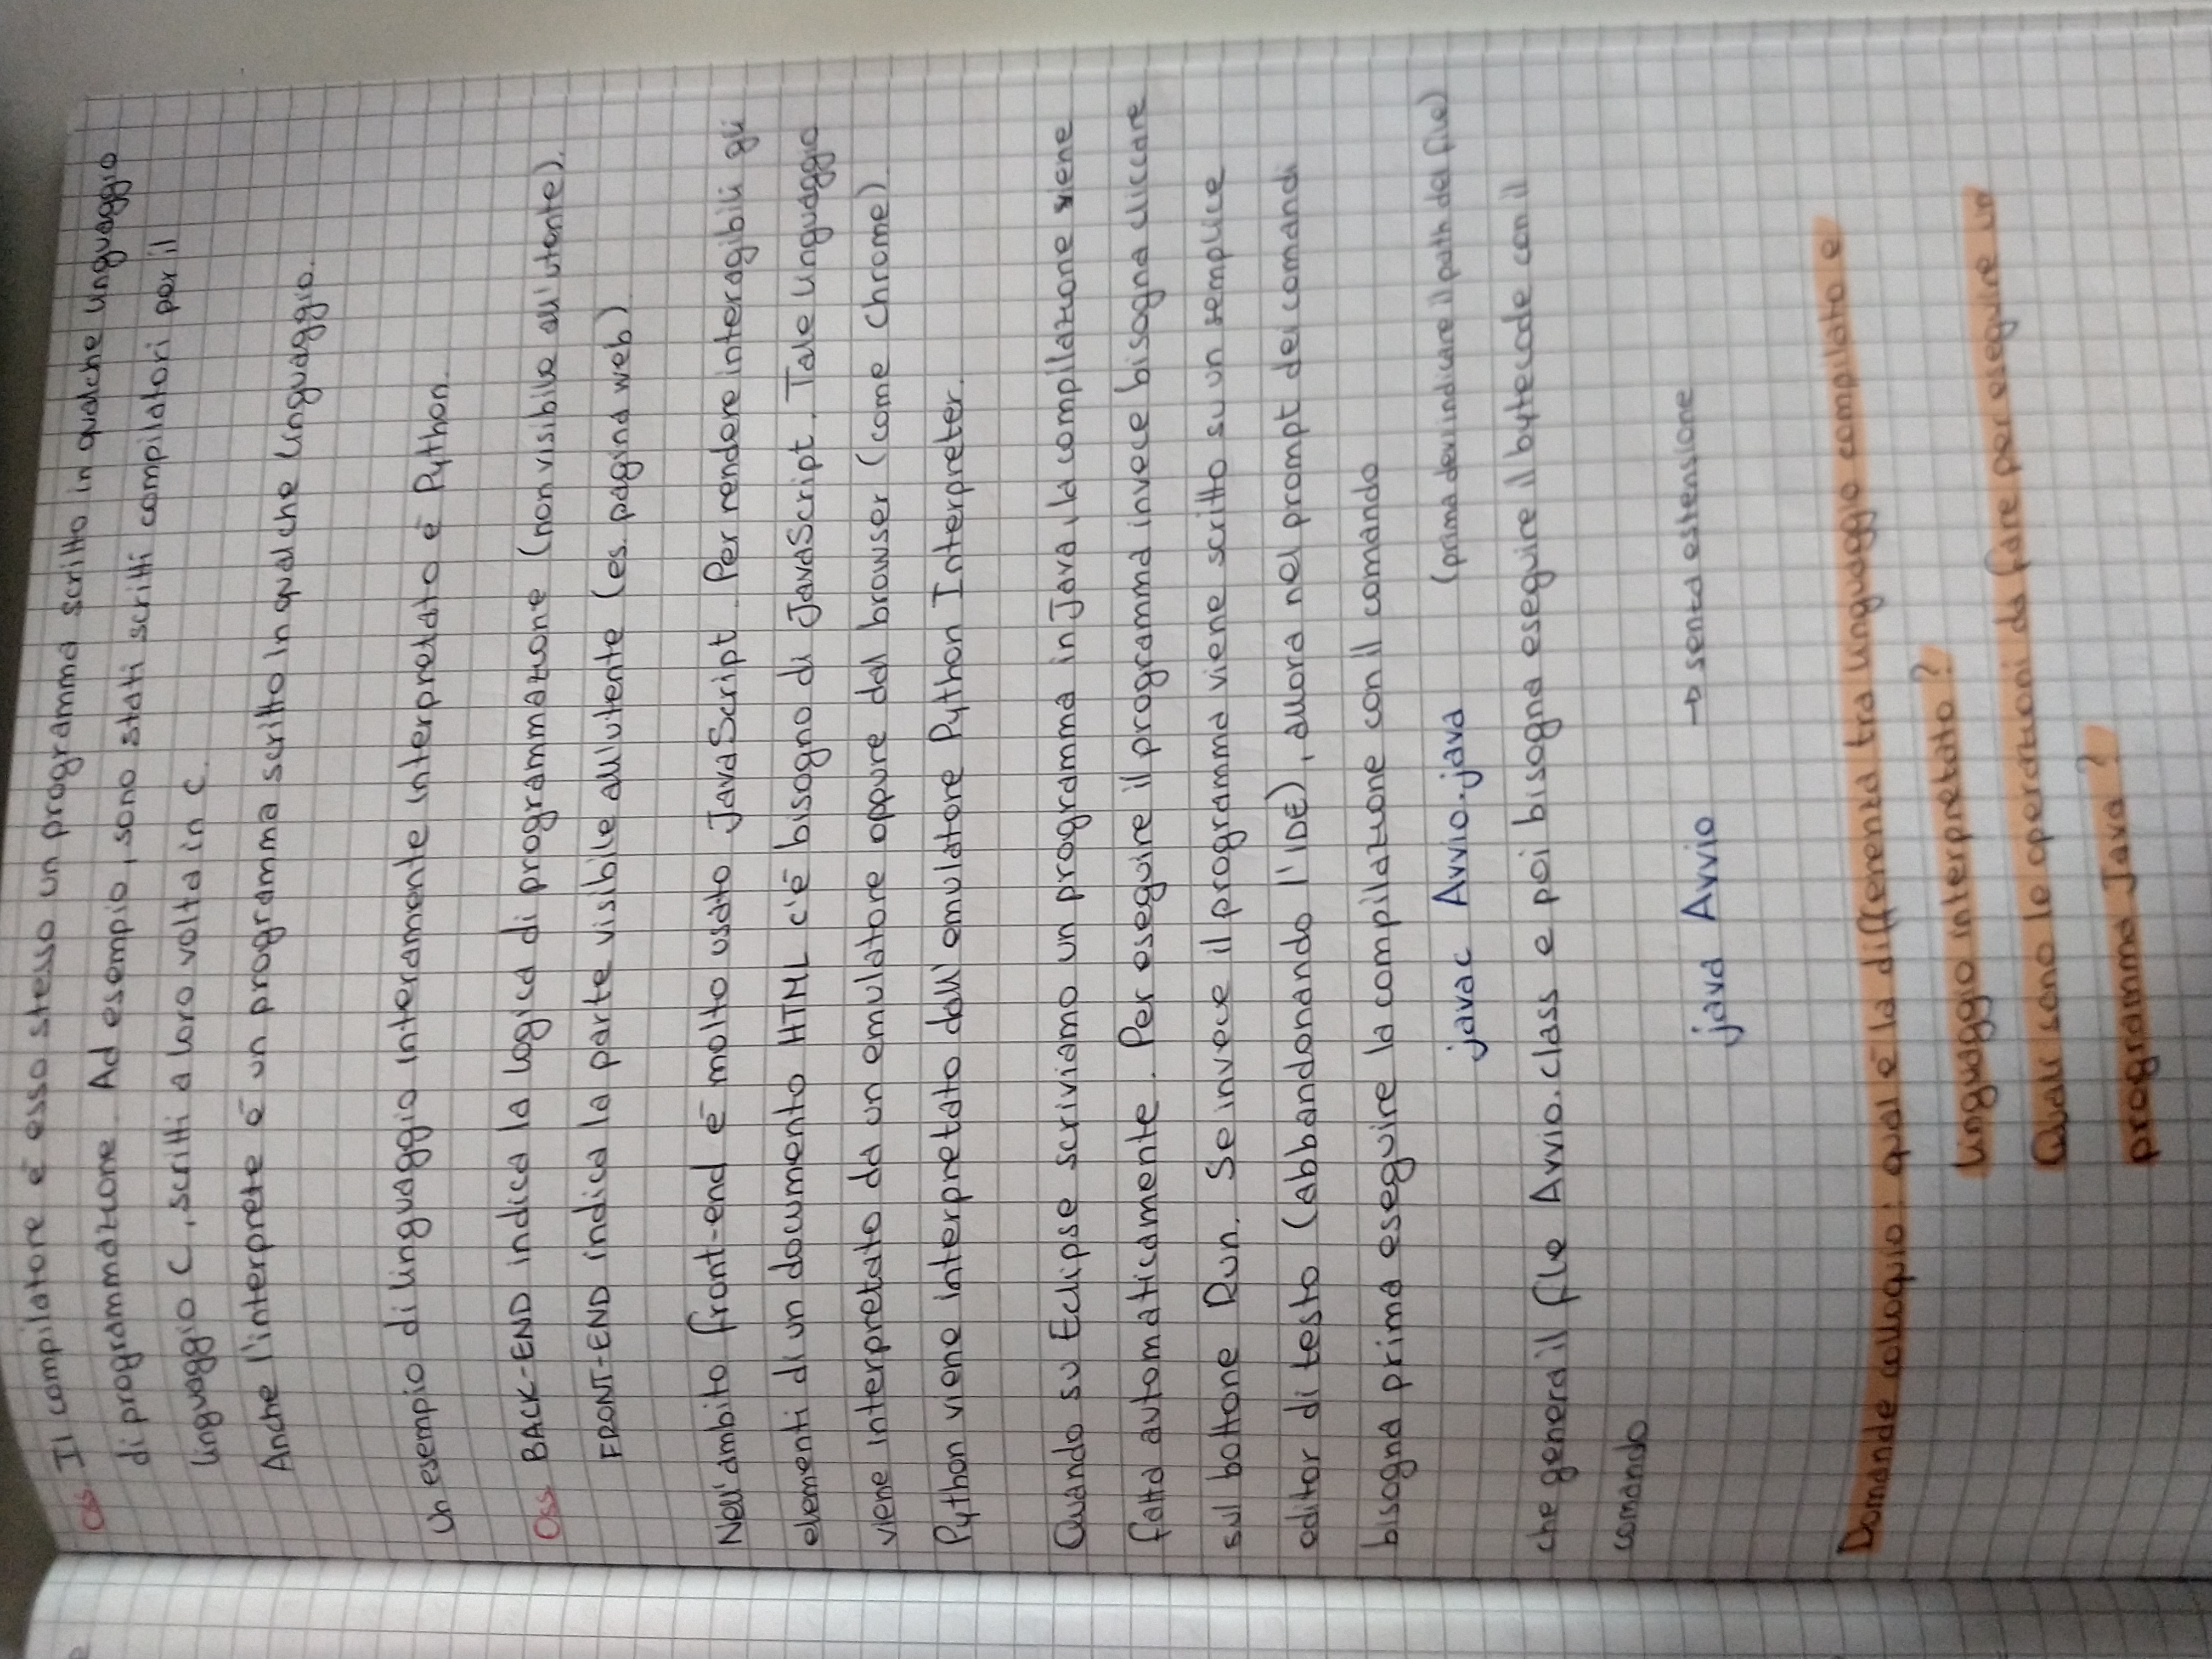 Oss Il compilatore è esso stesso un programma scritto in qualche linguaggio
di programmazione. Ad esempio, sono stati scritti compilatori per il
linguaggio C, scritti a loro volta in C.
Anche l'interprete è un programma scritto in qualche linguaggio.
Un esempio di linguaggio interamente interpretato è Python.
Oss BACK-END indica la logica di programmazione (non visibile all'utente).
FRONT-END indica la parte visibile all'utente (es. pagina web)
Nell'ambito front-end è molto usato JavaScript. Per rendere interagibili gli
elementi di un documento HTML c'è bisogno di JavaScript. Tale linguaggio
viene interpretato da un emulatore oppure dal browser (come Chrome)
Python viene interpretato dall'emulatore Python Interpreter.
Quando su Eclipse scriviamo un programma in Java, la compilazione viene
fatta automaticamente. Per eseguire il programma invece bisogna cliccare
sul bottone Run. Se invece il programma viene scritto su un semplice
editor di testo (abbandonando l'IDE), allora nel prompt dei comandi
bisogna prima eseguire la compilazione con il comando
javac Avvio.java (prima devi indicare il path del file)
che genera il file Avvio.class e poi bisogna eseguire il bytecode con il
comando
java Avvio → senza estensione
Domande colloquio: qual è la differenza tra linguaggio compilato e
linguaggio interpretato?
Quali sono le operazioni da fare per eseguire un
programma Java?